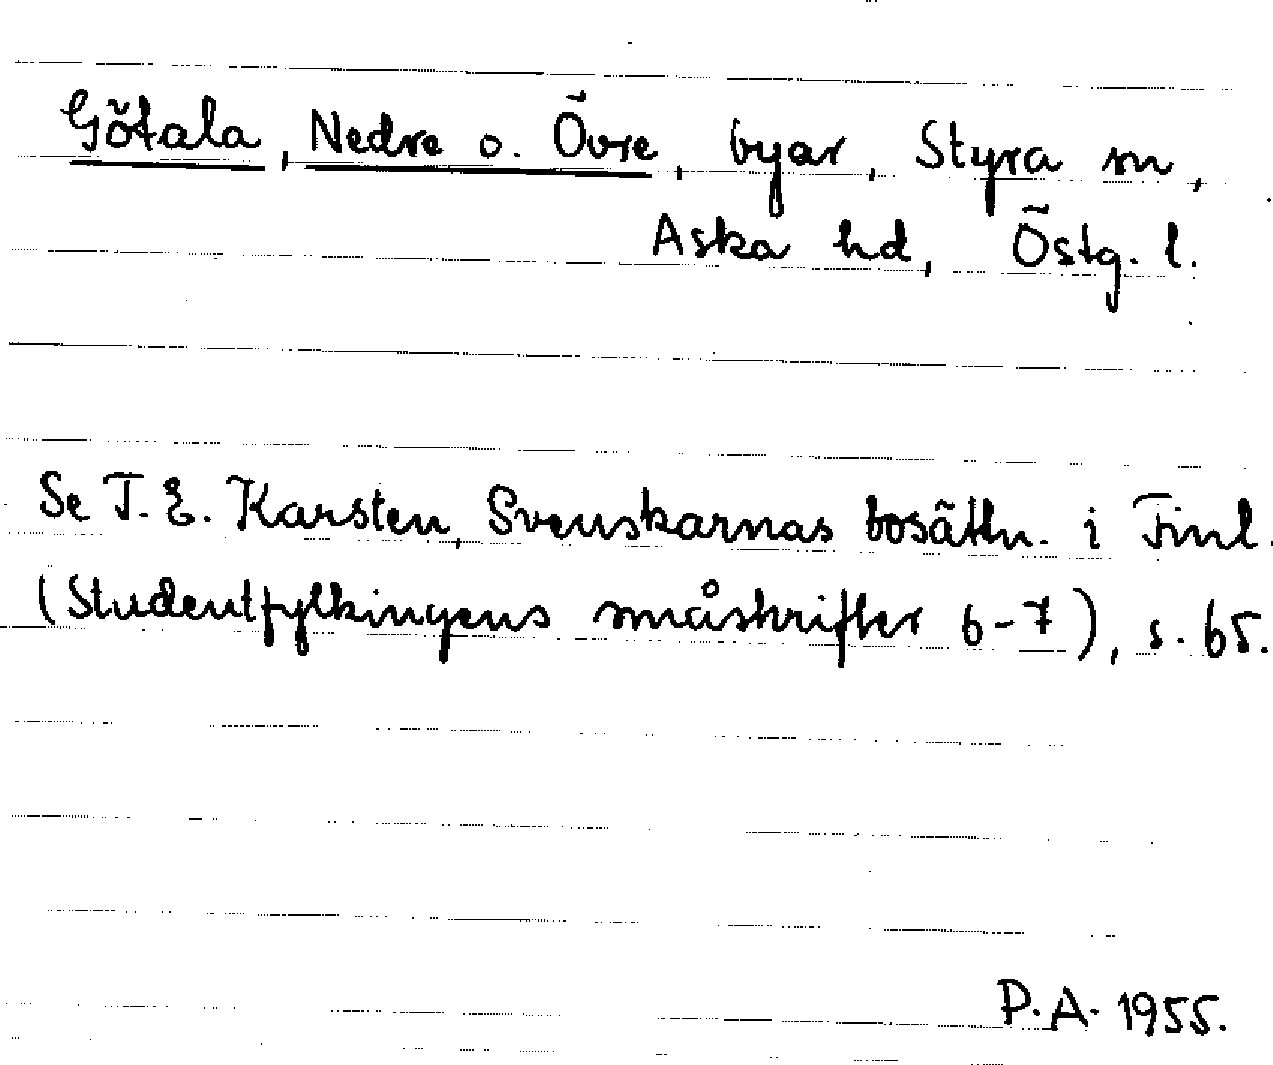 Götala, Nedre o. Övre, byar, Styra sn,
Aska hd, Östg. l.
Se T. E. Karsten, Svenskarnas bosättn. i Finl.
(Studentfylkingens småskrifter 6-7), s. 65.
P.A. 1955.